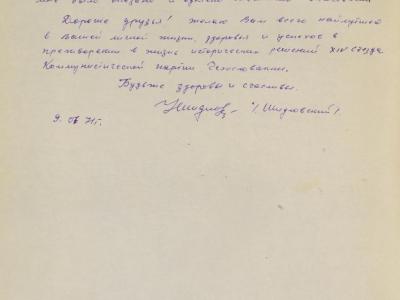 было оказано и
Дорогие друзья! Желаю Вам всего наилучшего
в Вашей личной жизни, здоровья и успехов в
претворении в жизнь исторических решений XIV съезда
Коммунистической партии Чехословакии.
Будьте здоровы и счастливы.
/Шидловский/.
9. 06 71г.